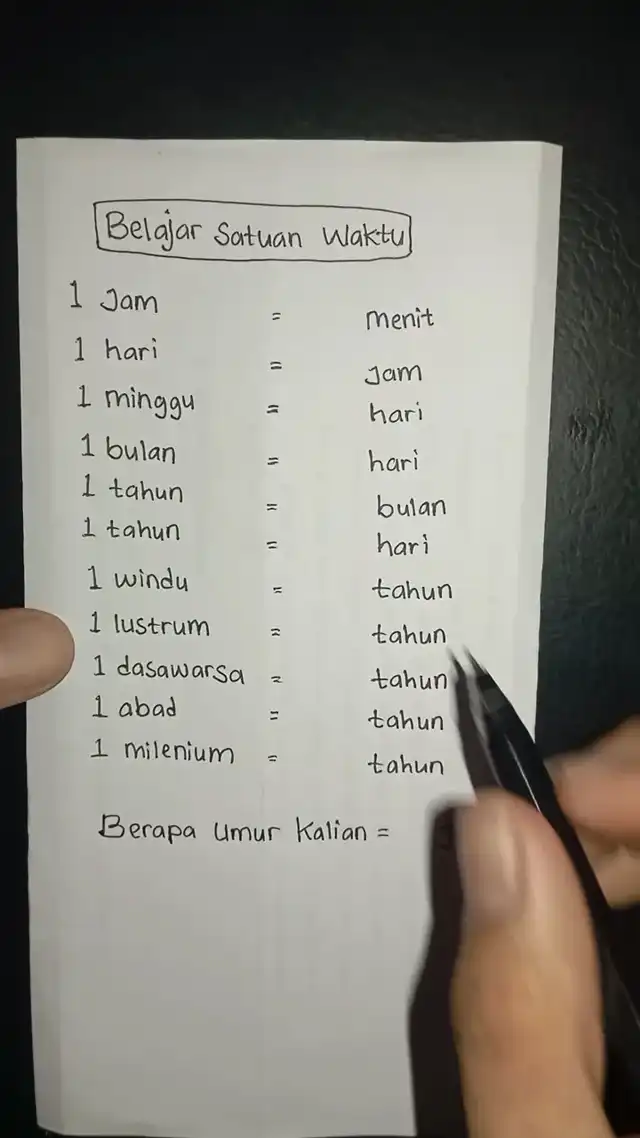 Belajar Satuan Waktu
1 Jam = menit
1 hari = Jam
1 minggu = hari
1 bulan = hari
1 tahun = bulan
1 tahun = hari
1 windu = tahun
1 lustrum = tahun
1 dasawarsa = tahun
1 abad = tahun
1 milenium = tahun
Berapa Umur Kalian =